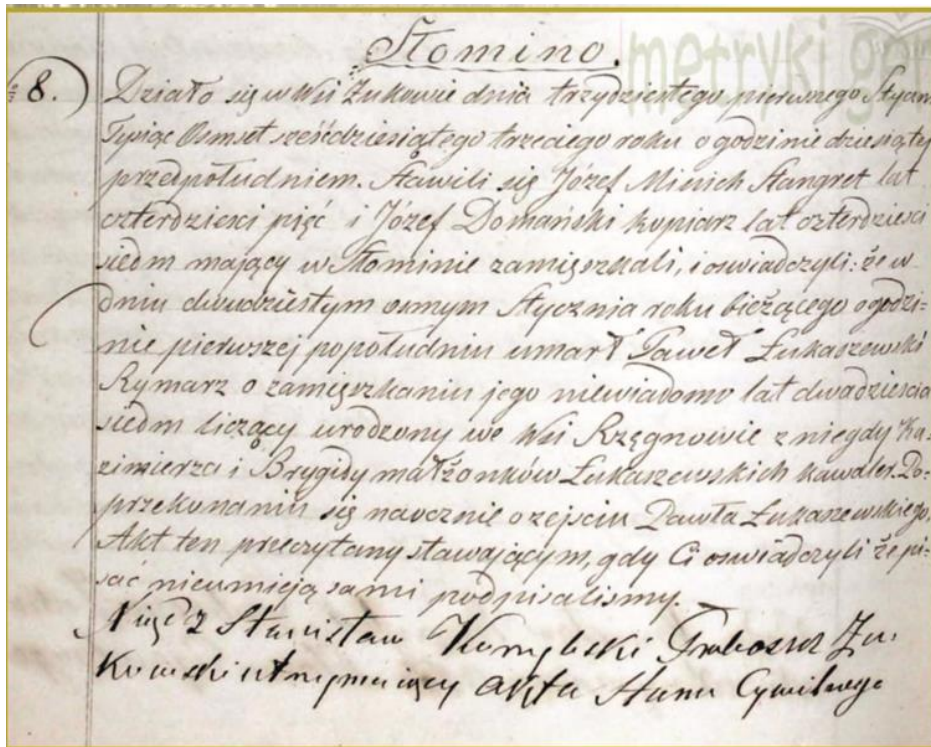 Słomino.
8.) Działo się w Wsi Żukowie dnia trzydziestego pierwszego Stycznia
Tysiąc Osmset sześćdziesiątego trzeciego roku o godzinie dziesiątej
przedpołudniem. Stawili się Józef Minich Stangret lat
czterdzieści pięć i Józef Domański kopiarz lat czterdzieści
siedm mający w Słominie zamięszkali, i oswiadczyli: że w
dniu dwudziestym osmym Stycznia roku bieżącego o godzi=
nie pierwszej popołudniu umarł Paweł Łukaszewski
Rymarz o zamięszkaniu jego niewiadomo lat dwadzieścia
siedm liczący urodzony we Wsi Rzęgnowie z niegdy Ka=
zimierza i Brygidy małżonków Łukaszewskich kawaler. Po=
przekonaniu się naocznie o zejściu Pawła Łukaszewskiego,
Akt ten przeczytany stawającym, gdy Ci oswiadczyli że pi=
sać nieumieją sami podpisalismy.
Xiądz Stanisław Proboszcz Żu=
kowski utrzymujący Akta Stanu Cywilnego
metryki gen